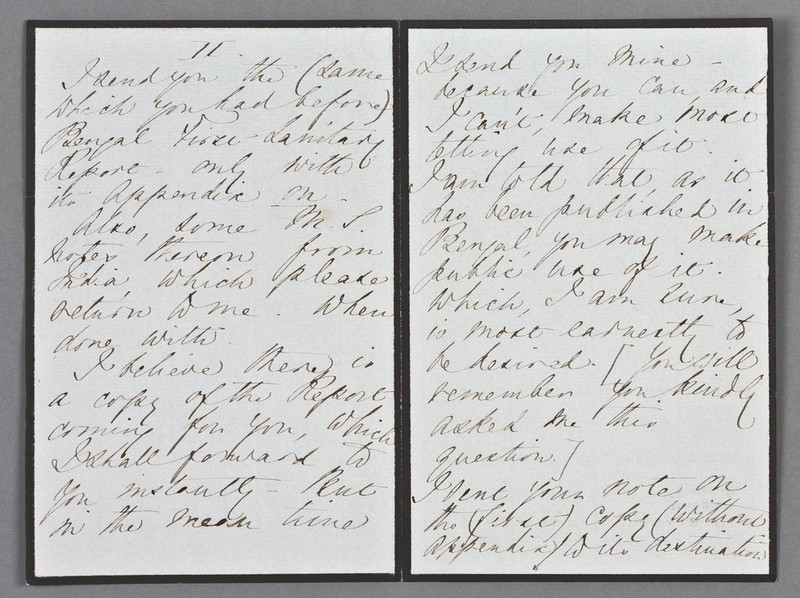 II.
I send you the (same
which you had before)
Bengal First Sanitary
Report - only with
its Appendix on -
Also, some M.S.
Notes thereon from
India, which please
return to me. When
done with.
I believe there is
a copy of the Report
coming for you, which
I shall forward to
you instantly - But
in the mean time
I send you mine -
because you can, and
I can't, make most
telling use of it.
I am told that, as it
has been published in
Bengal, you may make
public use of it.
Which, I am sure,
is most earnestly to
be desired. [You will
remember you kindly
asked me this
question.]
I sent your note on
the (first) copy (without
Appendix) to its destination